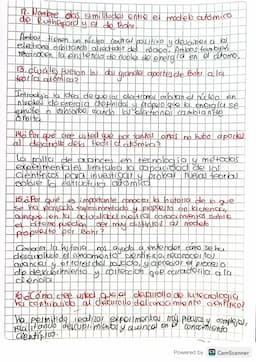 12. Nombre dos similitudes entre el modelo atómico
de Rutherford y el de Bohr.
Ambos tienen un núcleo central positivo y describen a los
electrones orbitando alrededor del núcleo. Ambos también
la existencia de niveles de energía en el átomo.
13. ¿Cuáles fueron los dos grandes aportes de Bohr a la
teoría atómica?
Introdujo la idea de que los electrones orbitan el núcleo en
niveles de energía definidos y propuso que la energía se
emite o absorbe cuando los electrones cambian de
órbita.
14. ¿Por qué cree usted que por tantos años no hubo aportes
al desarrollo de la teoría atómica?
La falta de avances en tecnología y métodos
experimentales limitaba la capacidad de los
científicos para investigar y probar nuevas teorías
sobre la estructura atómica
15. ¿Por qué es importante conocer la historia de lo que
se ha pensado experimentado y propuesto en la ciencia,
aunque en la actualidad nuestros conocimientos sobre
el átomo puedan ser muy distintos al modelo
propuesto por Bohr?
Conocer la historia nos ayuda a entender cómo se ha
desarrollado el conocimiento científico, reconocer los
avances y errores del pasado, y apreciar el proceso
de descubrimiento y corrección que caracteriza a la
ciencia.
16. ¿Cómo cree usted que el desarrollo de la tecnología
ha contribuido al desarrollo del conocimiento científico?
Ha permitido realizar experimentos más precisos y complejos,
facilitando descubrimientos y avances en el conocimiento
científico.
Powered by CamScanner